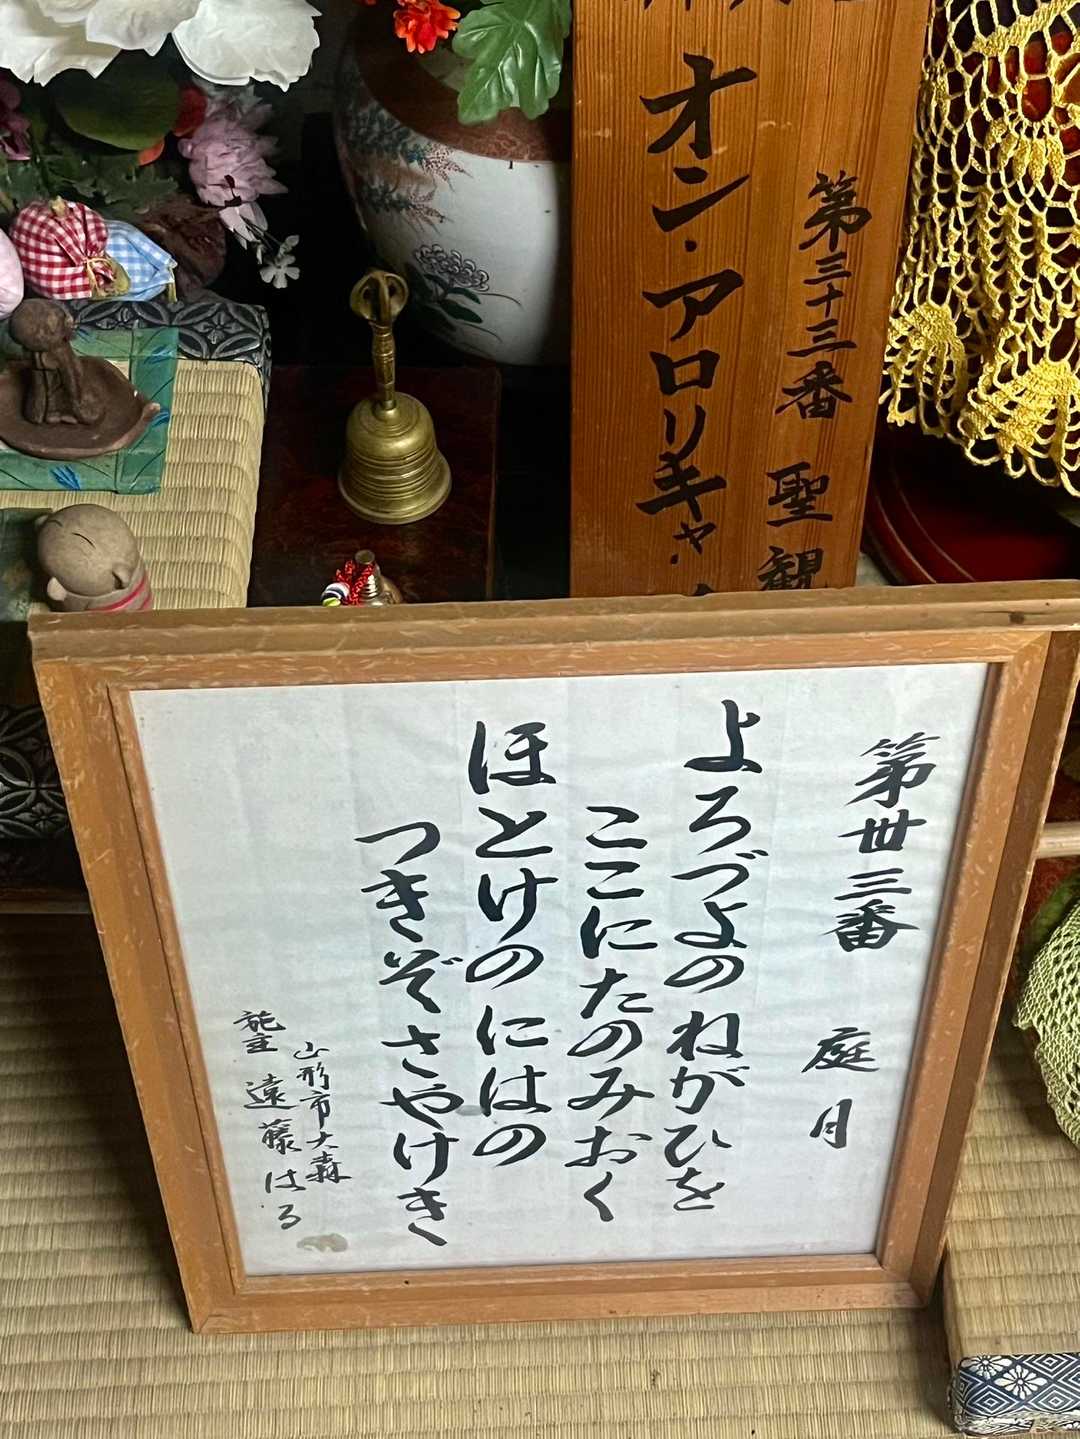 第三十三番 聖観
オン・アロリキャ・
第丗三番 庭月
よろづよのねがひを
ここにたのみおく
ほとけのにはの
つきぞさやけき
山形市大森
施主 遠藤はる